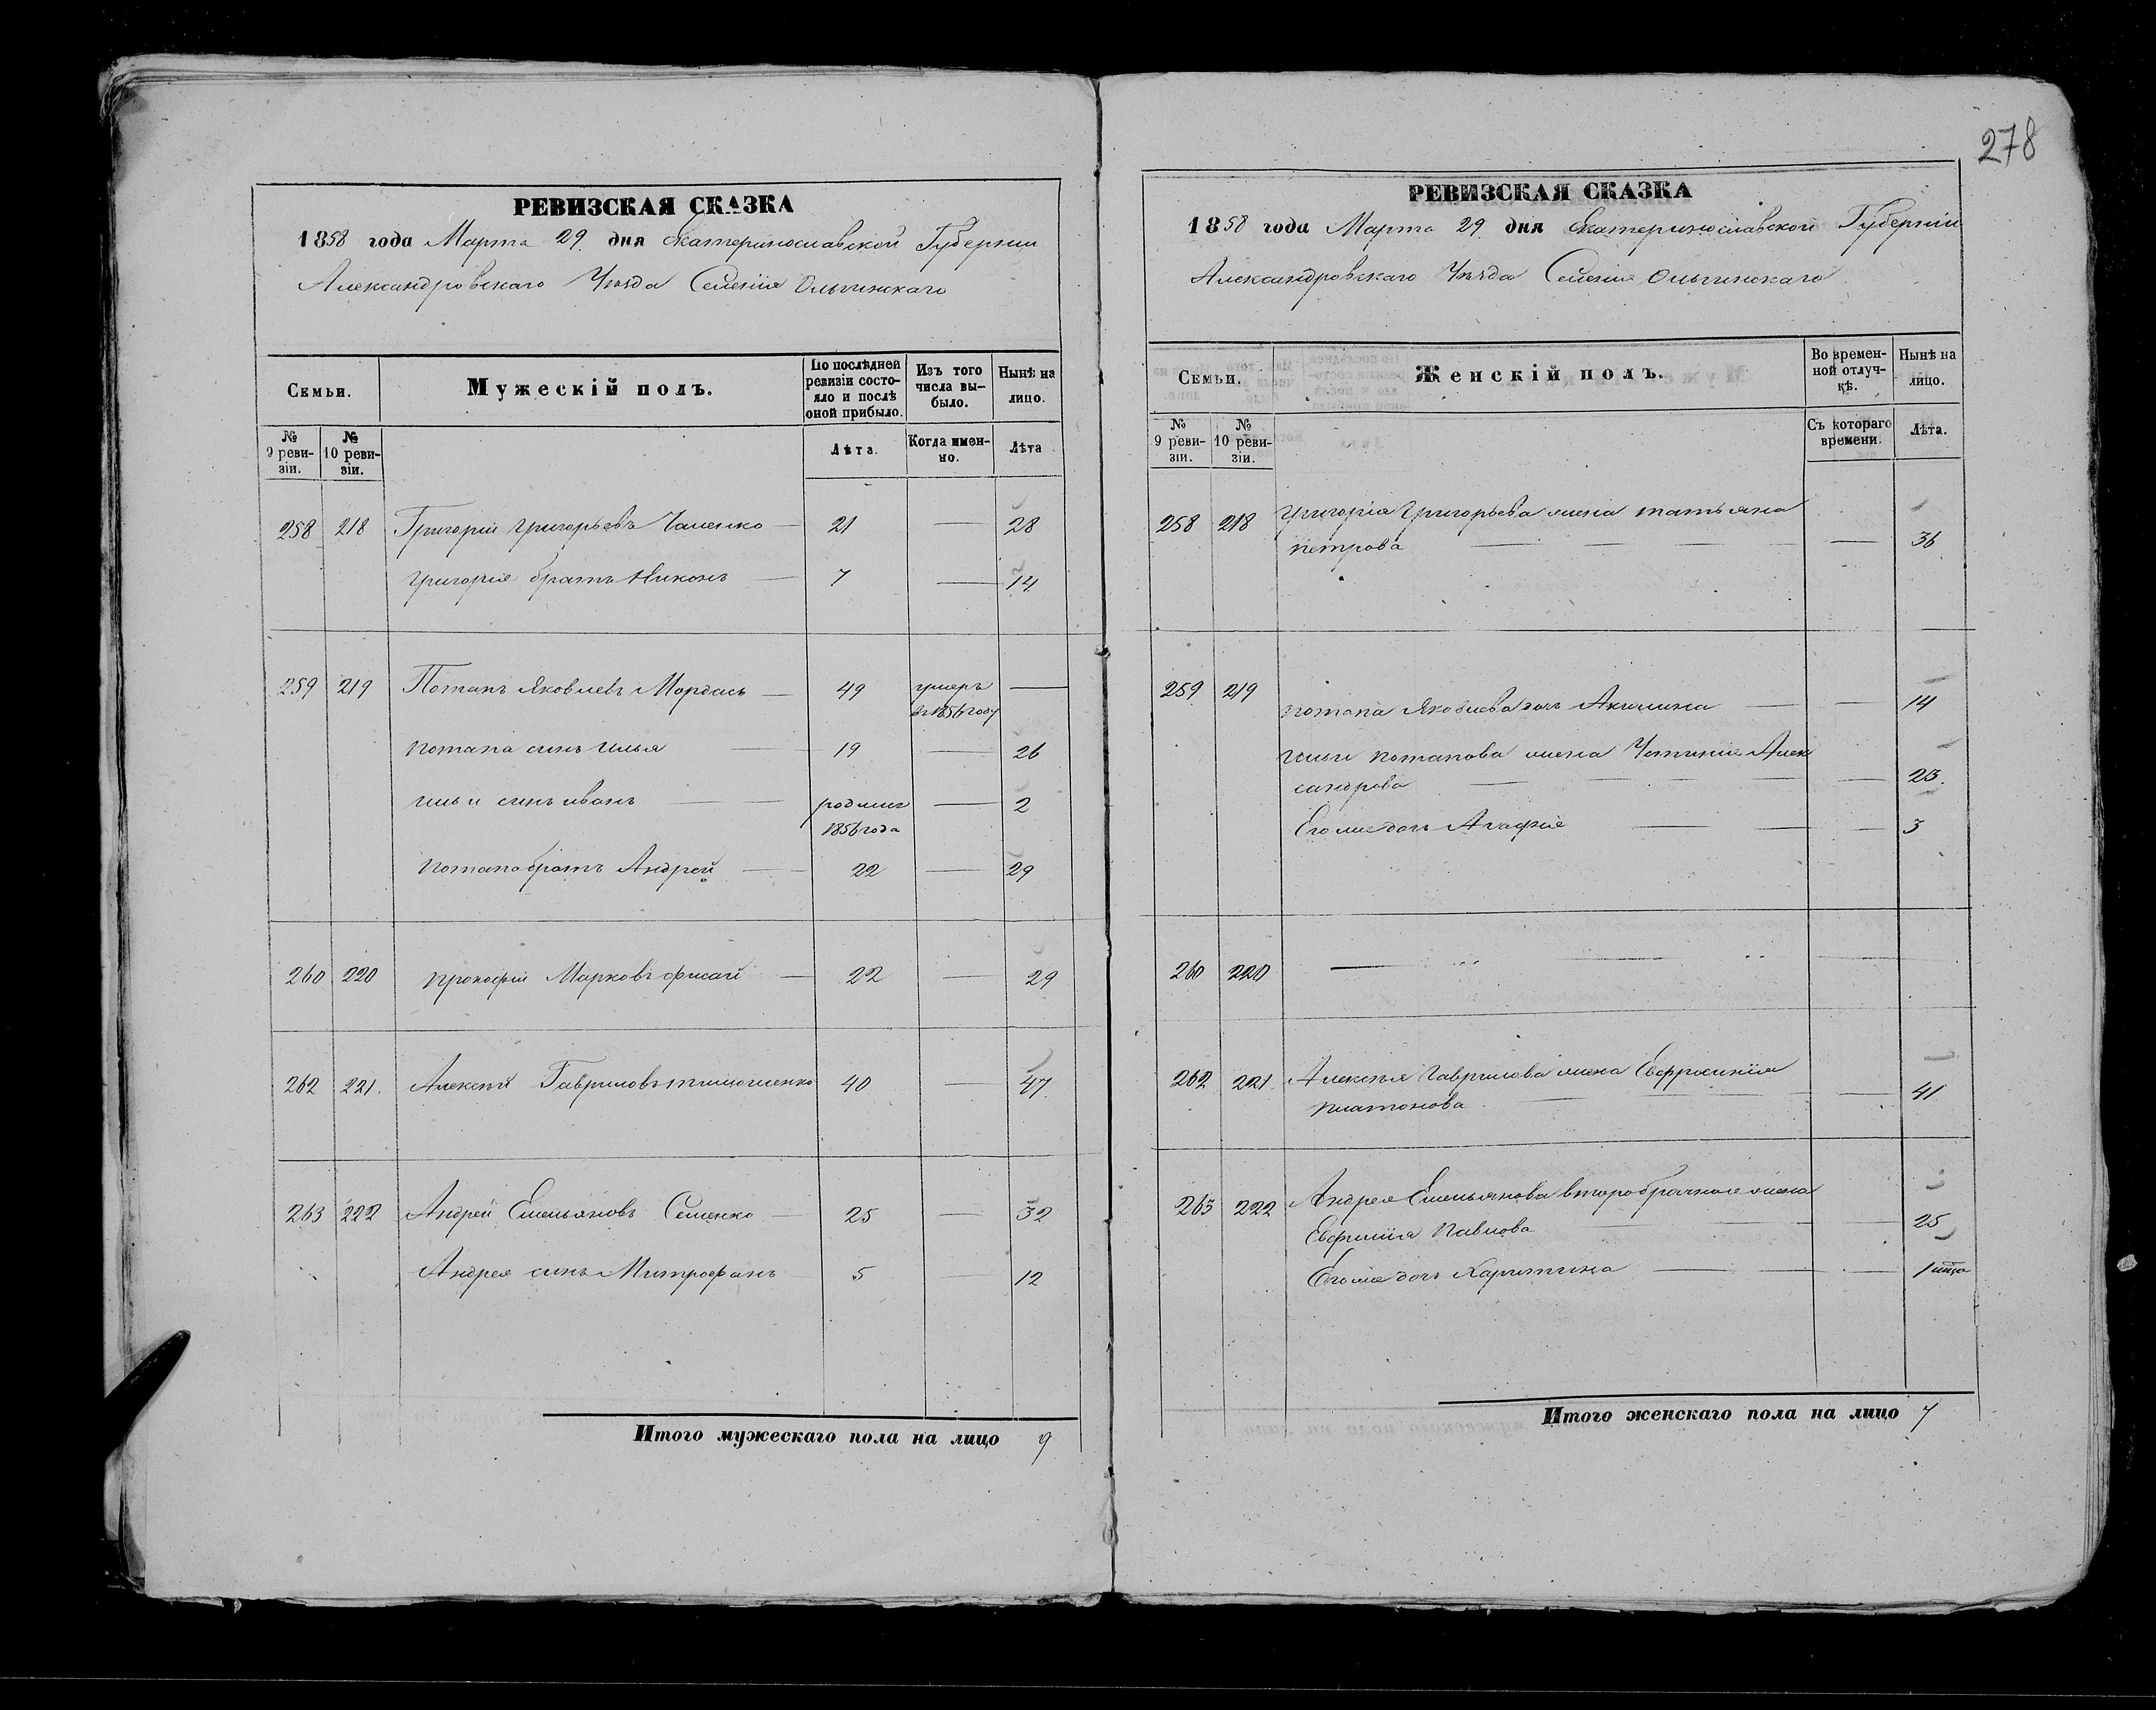 278
РЕВИЗСКАЯ СКАЗКА
1858 года Марта 29 дня Екатеринославской Губернии
Александровскаго Уѣзда Селенія Ольгинскаго
Семьи.
Мужескій полъ.
По послѣдней ревизіи состояло и послѣ оной прибыло.
Изъ того числа выбыло.
Нынѣ на лицо.
№ 9 ревизіи.
№ 10 ревизіи.
Лѣта.
Когда именно.
Лѣта
258 218 Григорій Григорьевъ 21 — 28
Григорія братъ Никонъ — 7 — 14
259 219 Потапъ Яковлевъ Мордась — 49 умеръ —
въ 1856 году
Потапа сынъ Илья — 19 — 26
Ильи сынъ иванъ — родился — 2
1856 года
Потапа братъ Андрей — 22 — 29
260 220 Прокофій Марковъ — 22 — 29
262 221. Алексѣй Гавриловъ тимошенко 40 — 47
263 222 Андрей Емельяновъ Семенко — 25 — 32
Андрея сынъ Митрофанъ 5 — 12
Итого мужескаго пола на лицо 9
РЕВИЗСКАЯ СКАЗКА
1858 года Марта 29 дня Екатеринославской Губерніи
Александровскаго Уѣзда Селенія Ольгинскаго
Семьи.
Женскій полъ.
Во временной отлучкѣ.
Нынѣ на лицо.
№ 9 ревизіи.
№ 10 ревизіи.
Съ котораго времени.
Лѣта.
258 218 Григорія Григорьева жена татьяна
петрова — 36
259 219
Потапа Яковлева дочь Акилина — 14
Ильи Потапова жена Устинія Алек
сандрова — 23.
Его же дочь Агафія — 3
260 220 —
262 221 Алексѣя Гаврилова жена Евфросинія
платонова — 41
263 222 Андрея Емельянова второбрачная жена
Евфимія Павлова — 25
Его же дочь Харитина — 1
Итого женскаго пола на лицо 7